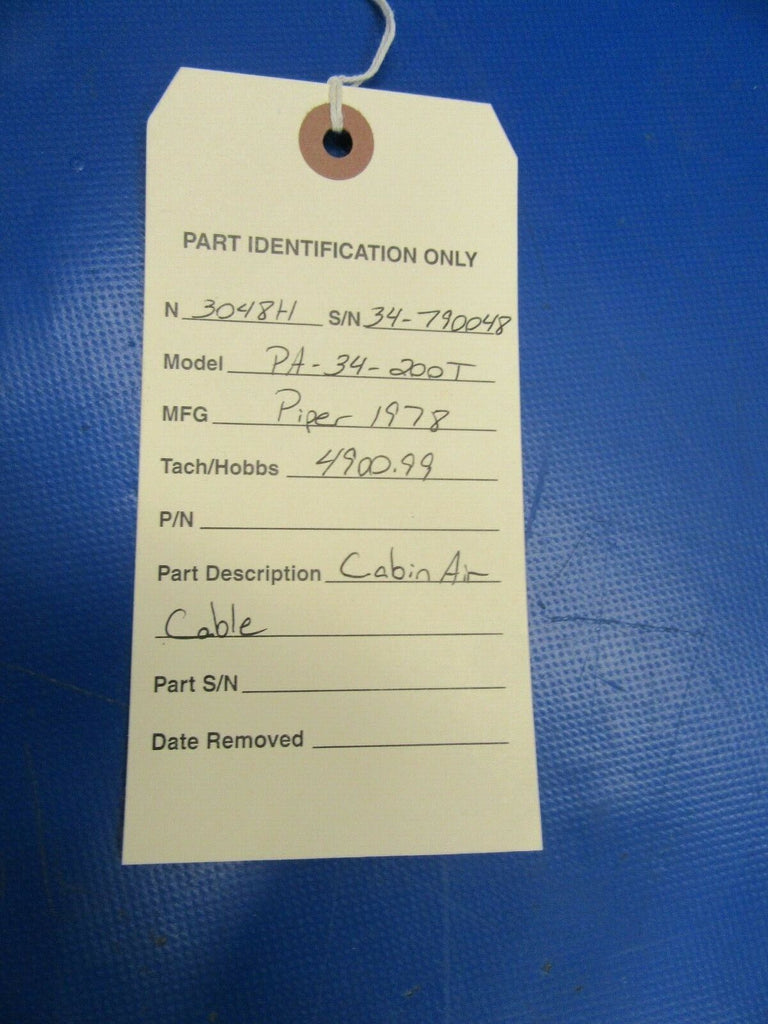 PART IDENTIFICATION ONLY
N 3048H S/N 34-790048
Model PA-34-200T
MFG Piper 1978
Tach/Hobbs 4900.99
P/N
Part Description Cabin Air
Cable
Part S/N
Date Removed